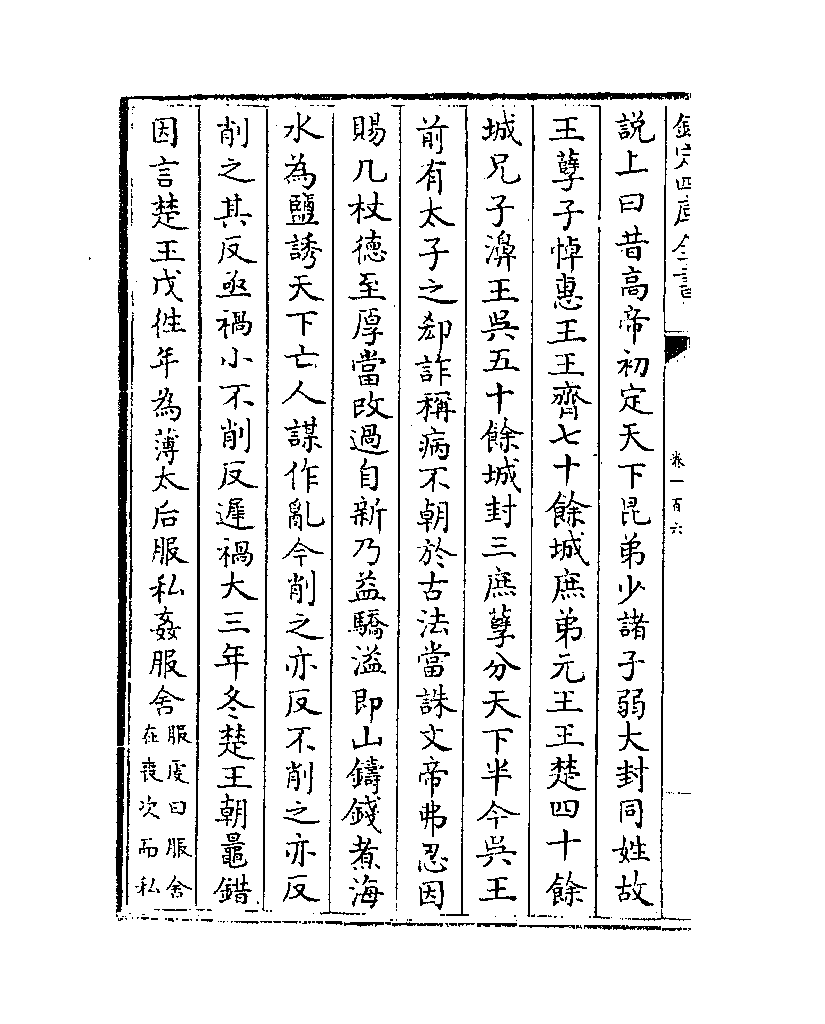 欽定四庫全書
卷一百六
說上曰昔高帝初定天下昆弟少諸子弱大封同姓故
王孽子悼惠王王齊七十餘城庶弟元王王楚四十餘
城兄子濞王吳五十餘城封三庶孽分天下半今吳王
前有太子之郄詐稱病不朝於古法當誅文帝弗忍因
賜几杖德至厚當改過自新乃益驕溢即山鑄錢煮海
水為鹽誘天下亡人謀作亂今削之亦反不削之亦反
削之其反亟禍小不削反遲禍大三年冬楚王朝鼂錯
因言楚王戊徃年為薄太后服私姦服舍
服䖍曰服舍
在喪次而私